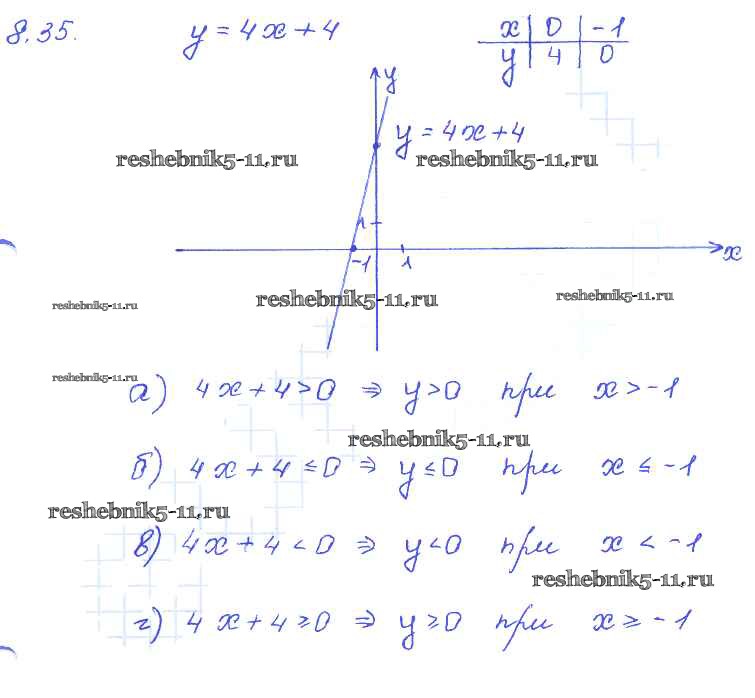 8.35. y = 4x + 4
x 0 -1
y 4 0
y
y = 4x + 4
reshebnik5-11.ru reshebnik5-11.ru
1
-1 1 x
reshebnik5-11.ru reshebnik5-11.ru reshebnik5-11.ru
reshebnik5-11.ru
а) 4x + 4 > 0 ⇒ y > 0 при x > -1
reshebnik5-11.ru
б) 4x + 4 ≤ 0 ⇒ y ≤ 0 при x ≤ -1
reshebnik5-11.ru
в) 4x + 4 < 0 ⇒ y < 0 при x < -1
reshebnik5-11.ru
г) 4x + 4 ≥ 0 ⇒ y ≥ 0 при x ≥ -1